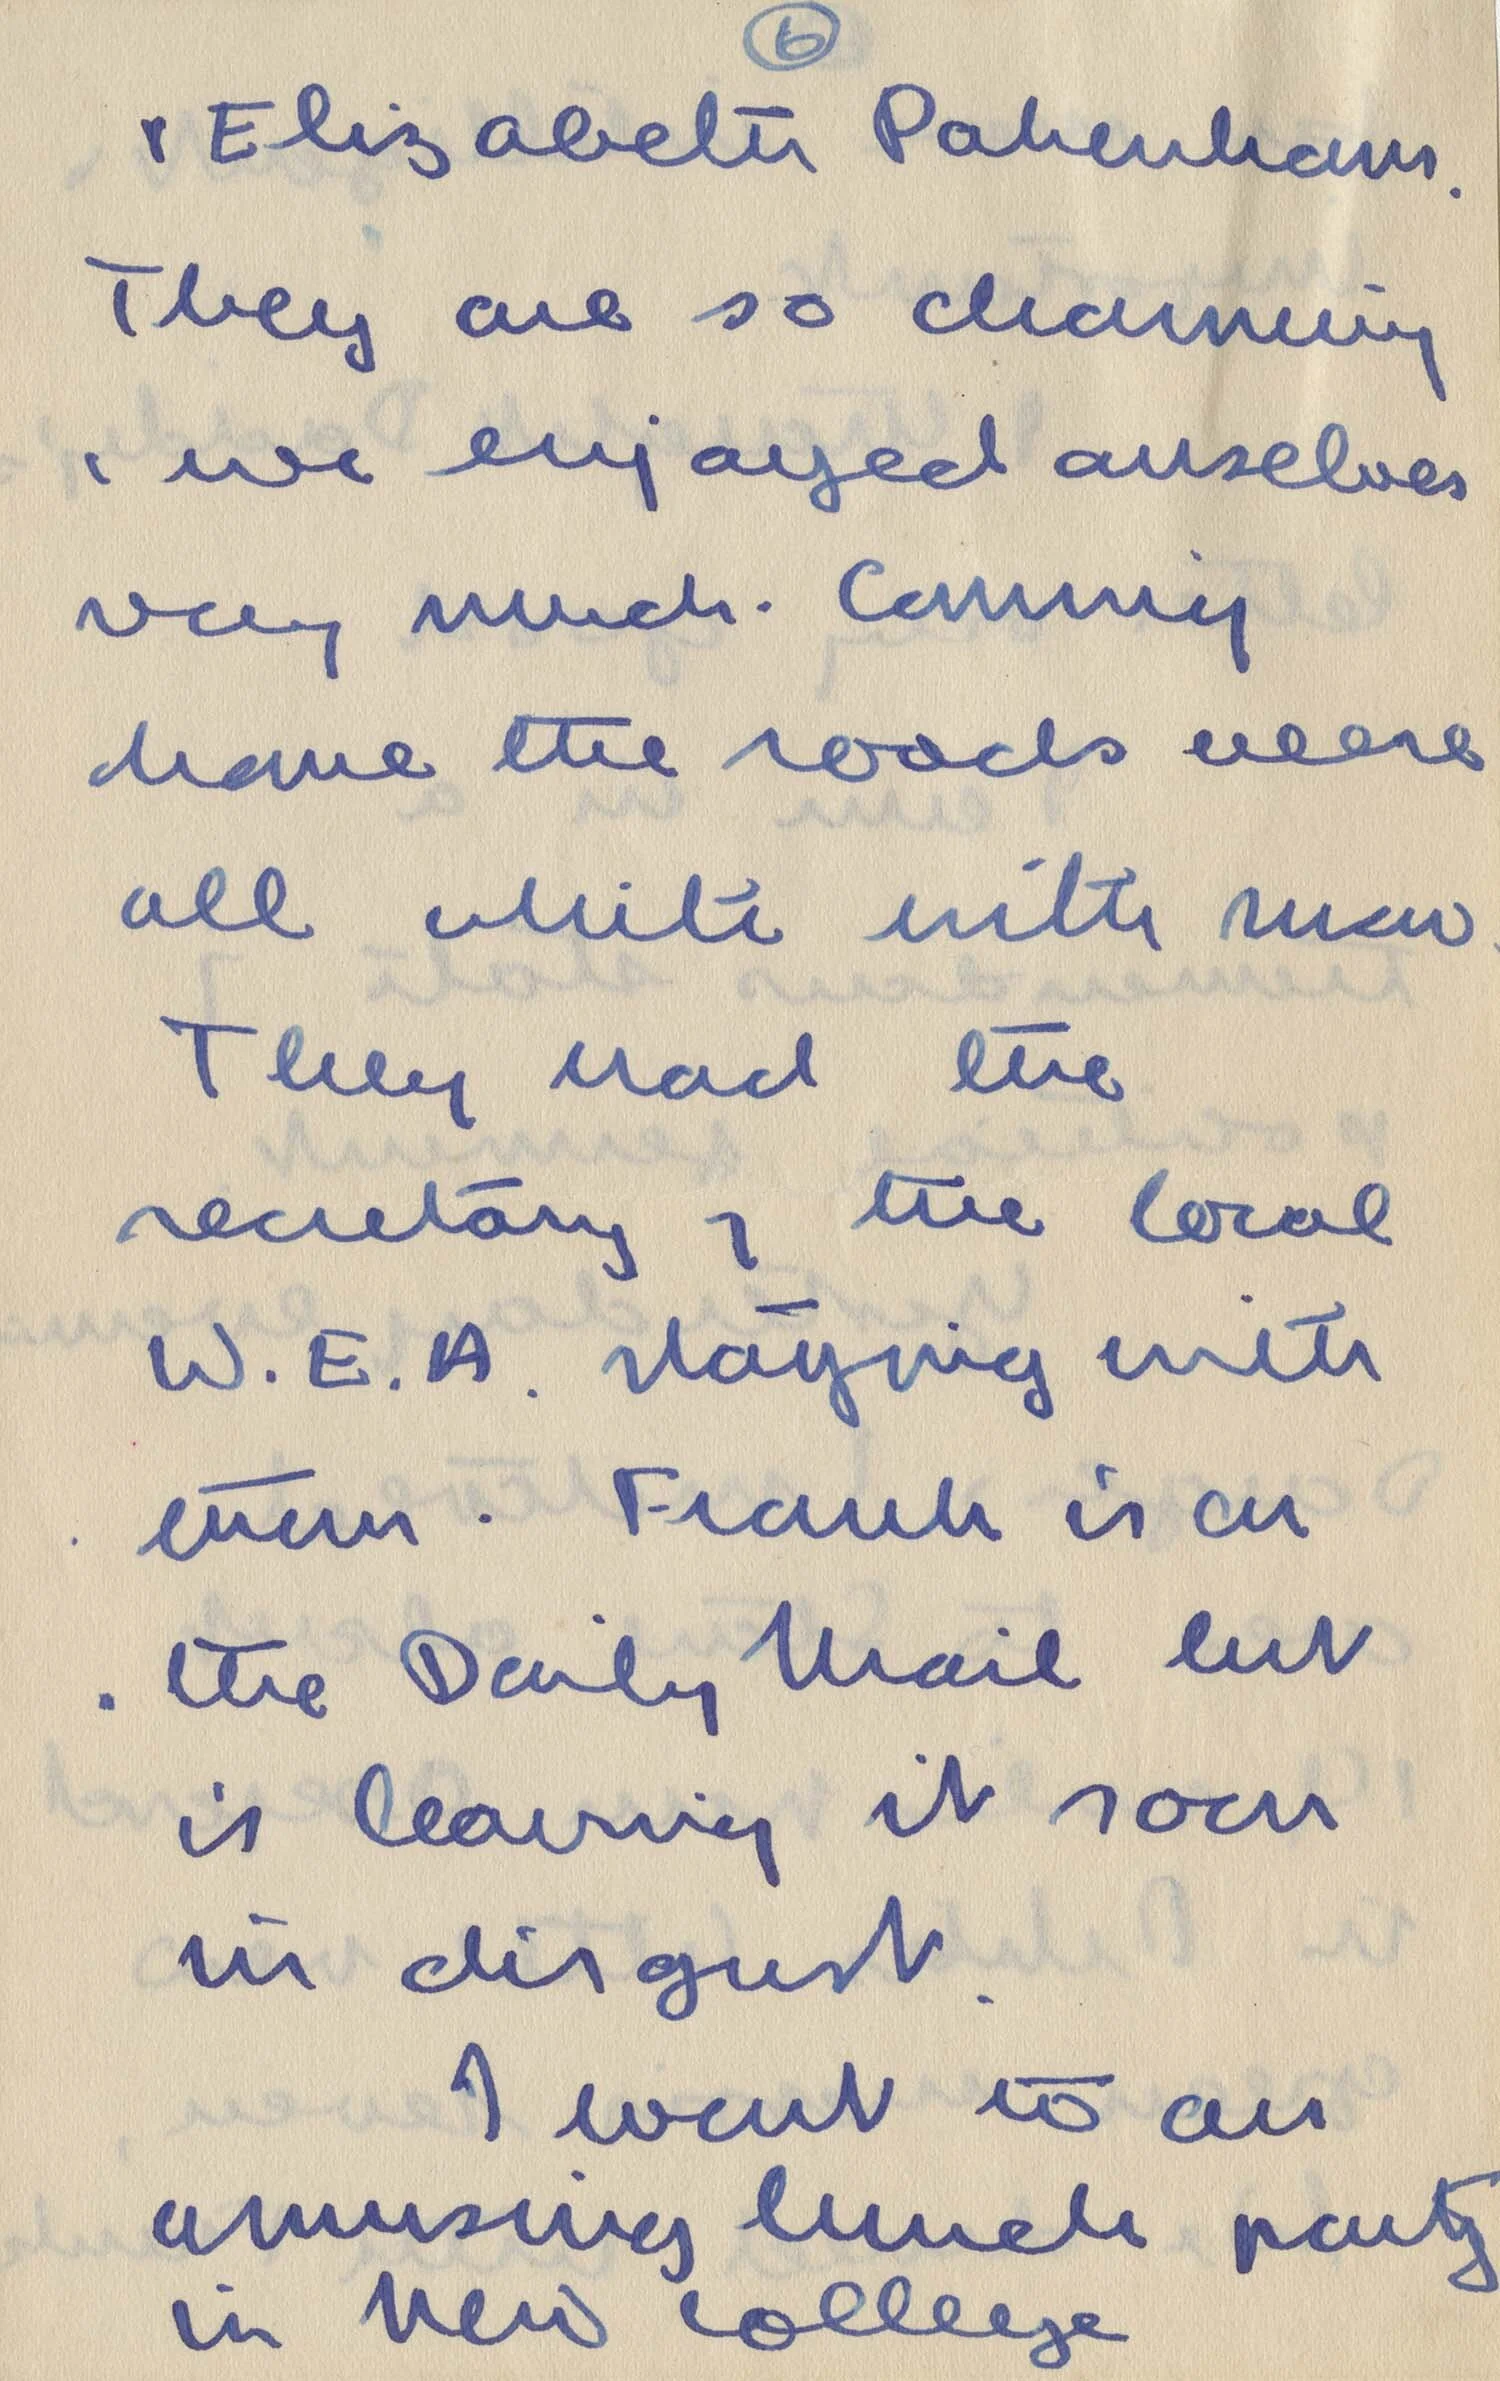 6
& Elizabeth Pakenham.
They are so charming
& we enjoyed ourselves
very much. Coming
home the roads were
all white with snow.
They had the
secretary of the local
W.E.A. staying with
them. Frank is on
the Daily Mail but
is leaving it soon
in disgust.
I went to an
amusing lunch party
in New College